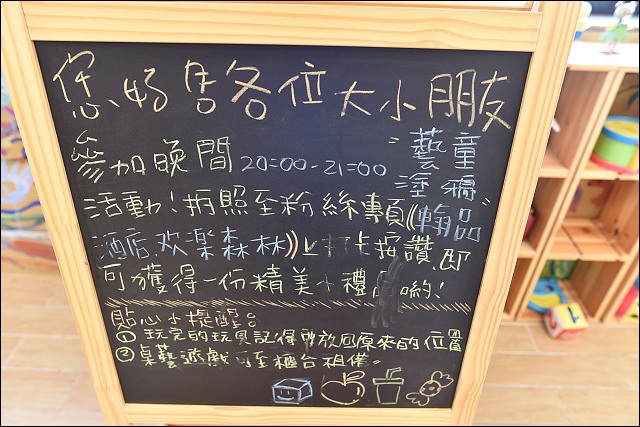 您好各位大小朋友
參加晚間20:00-21:00 "藝童塗鴉"
活動!拍照至粉絲專頁((翰品
酒店.欢楽森林))打卡按讚,即
可獲得一份精美小禮 喲!
貼心小提醒。
①玩完的玩具記得 放回原來的位置
②桌藝遊戲可至櫃台租借。